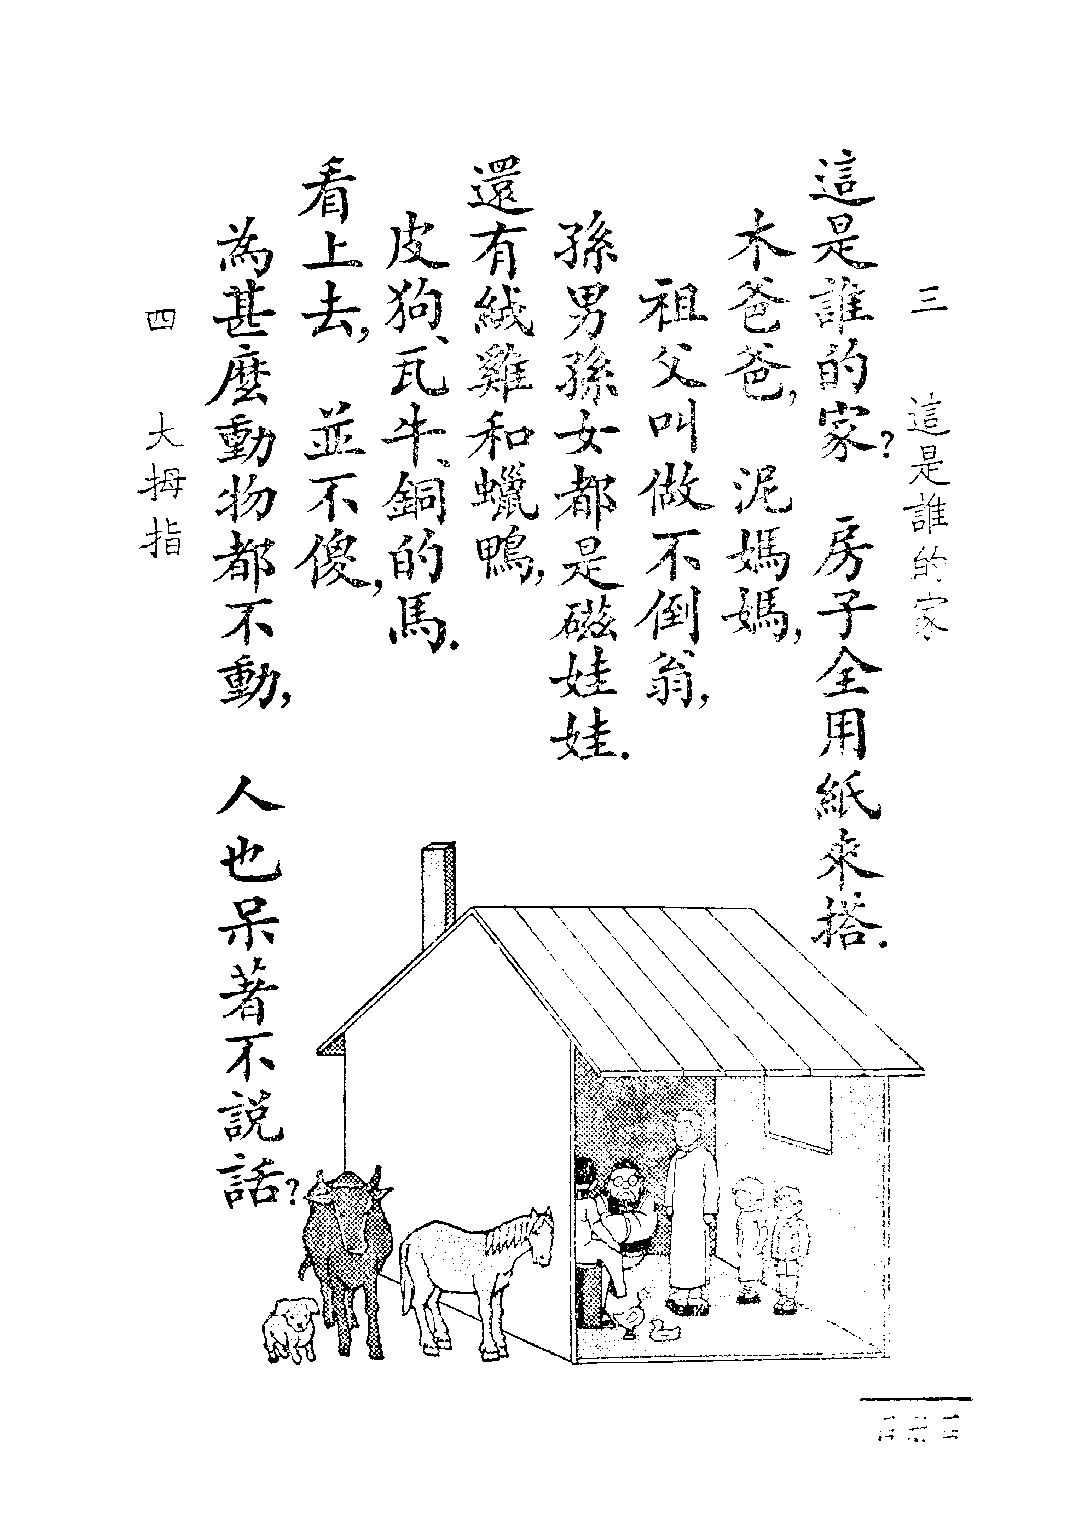 三 這是誰的家
這是誰的家? 房子全用紙來搭.
木爸爸, 泥媽媽,
祖父叫做不倒翁,
孫男孫女都是磁娃娃.
還有絨雞和蠟鴨,
皮狗、瓦牛、銅的馬.
看上去, 並不傻,
為甚麼動物都不動, 人也呆著不說話?
四 大拇指